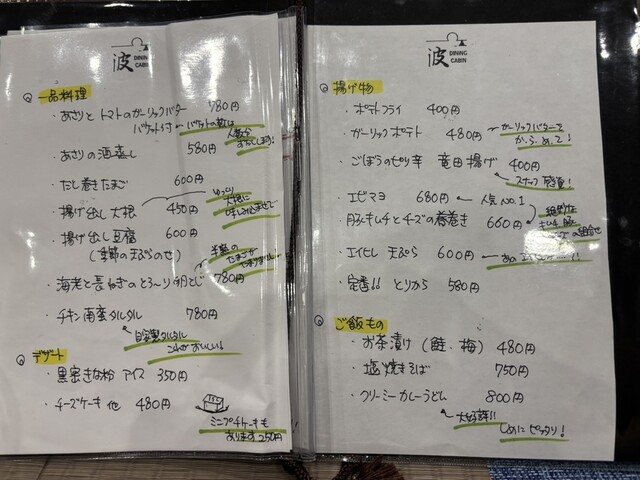 波 DINING CABIN
一品料理
・あさりとトマトのガーリックバター 780円
バケット付 バケットの数は
人数分
・あさりの酒蒸し 580円
・だし巻きたまご 600円
・揚げ出し大根 450円
ゆっくり
大根に
味しみ込ませて
・揚げ出し豆腐 600円
(季節の天ぷらのせ)
・海老と長ねぎのとろ〜り卵とじ 780円
・チキン南蛮タルタル 780円
自家製タルタル
これがおいしい!
デザート
・黒蜜きな粉アイス 350円
・チーズケーキ他 480円
ミニプチケーキも
あります250円
波 DINING CABIN
揚げ物
・ポテトフライ 400円
・ガーリックポテト 480円 ガーリックバターを
か・ら・め・て!
・ごぼうのピリ辛 竜田揚げ 400円
スナック感覚!
・エビマヨ 680円 人気NO.1
・豚キムチとチーズの春巻き 660円
・エイヒレ 天ぷら 600円
・定番!! とりから 580円
ご飯もの
・お茶漬け (鮭・梅) 480円
・塩焼きそば 750円
・クリーミーカレーうどん 800円
大好評!!
しめにピッタリ!